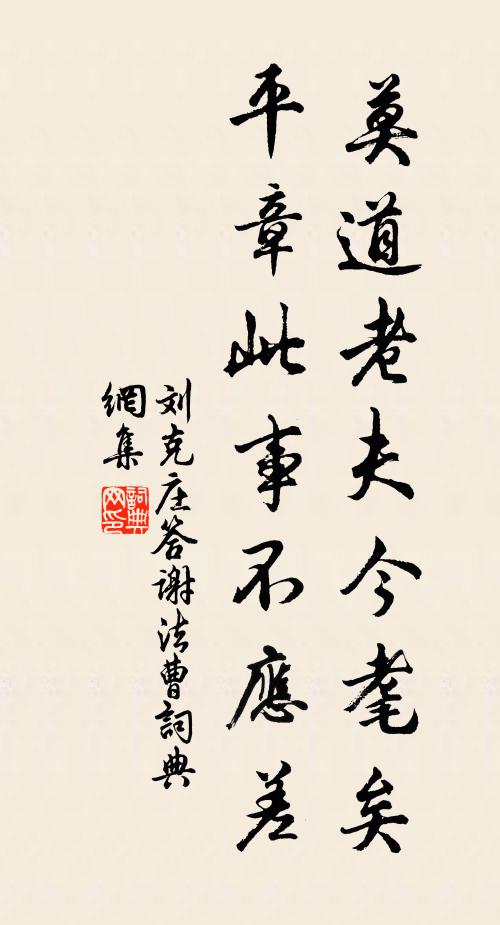 莫道老夫今耄矣
平章此事不應差
刘克庄答谢法曹詞典
網集
詞典
网印